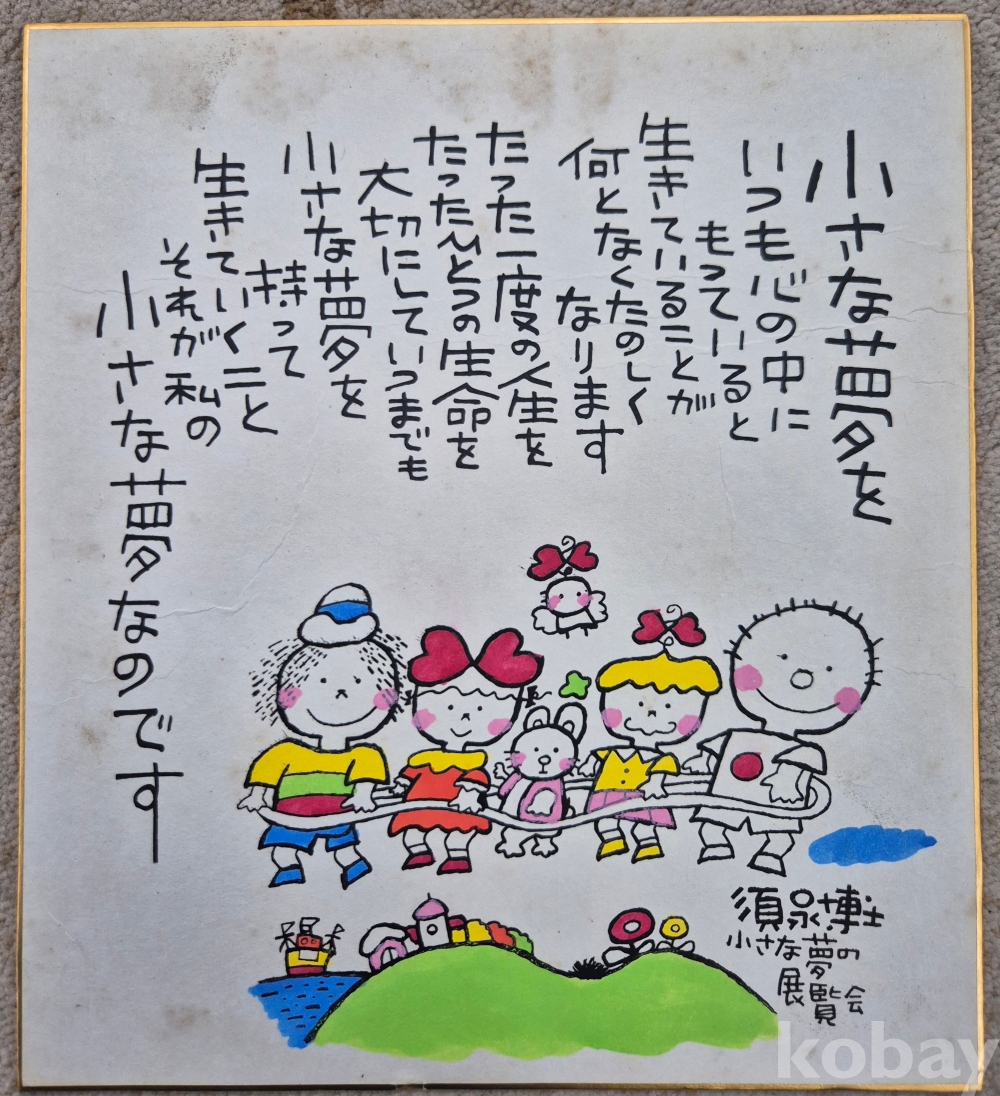 小さな夢を
いつも心の中に
もっていると
生きていることが
何となくたのしく
なります
たった一度の人生を
たったひとつの生命を
大切にしていつまでも
小さな夢を
持って
生きていくこと
それが私の
小さな夢なのです
須永博士
小さな夢の
展覧会
kobay